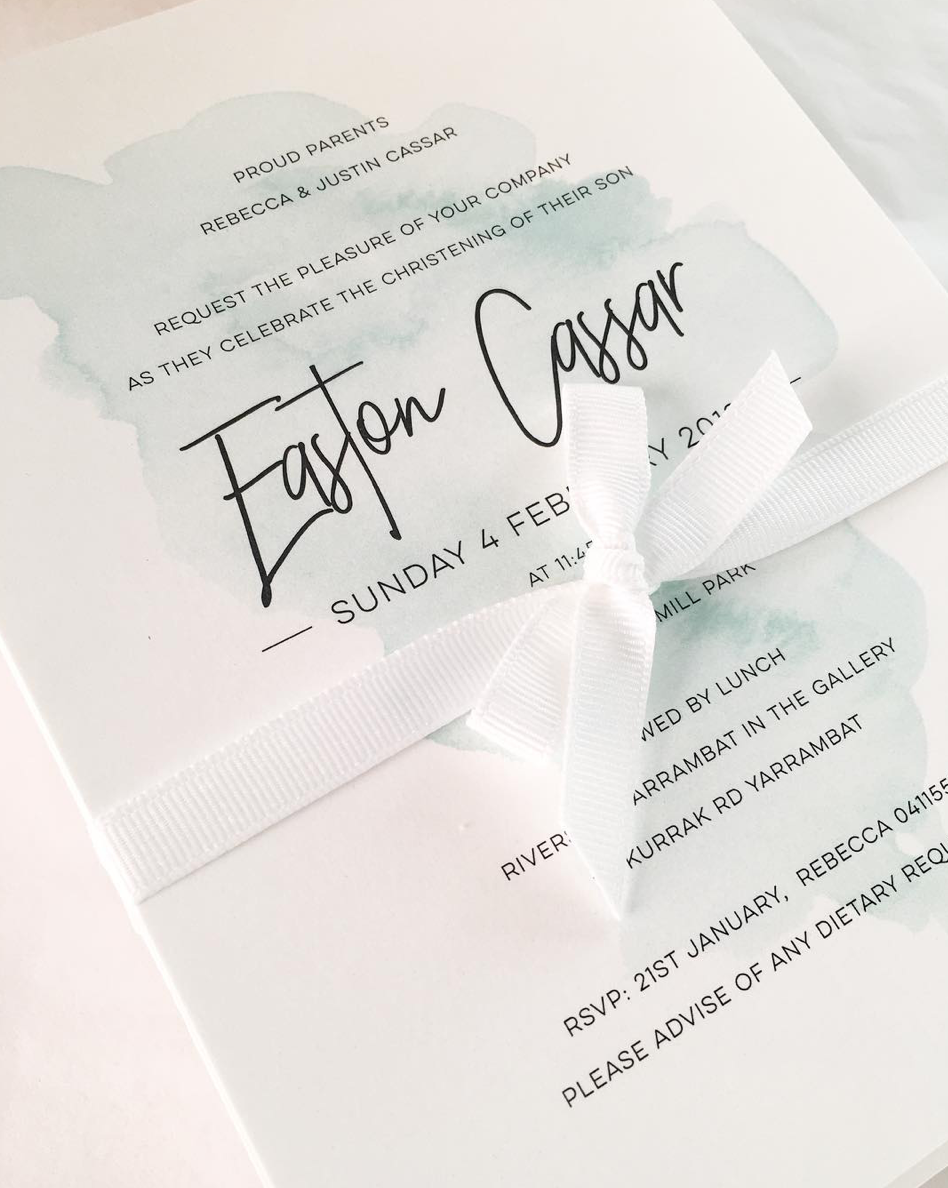 PROUD PARENTS
REBECCA & JUSTIN CASSAR
REQUEST THE PLEASURE OF YOUR COMPANY
AS THEY CELEBRATE THE CHRISTENING OF THEIR SON
Easton Cassar
SUNDAY 4
AT
MILL PARK
BY LUNCH
IN THE GALLERY
KURRAK RD YARRAMBAT
RSVP: 21ST JANUARY, REBECCA
PLEASE ADVISE OF ANY DIETARY